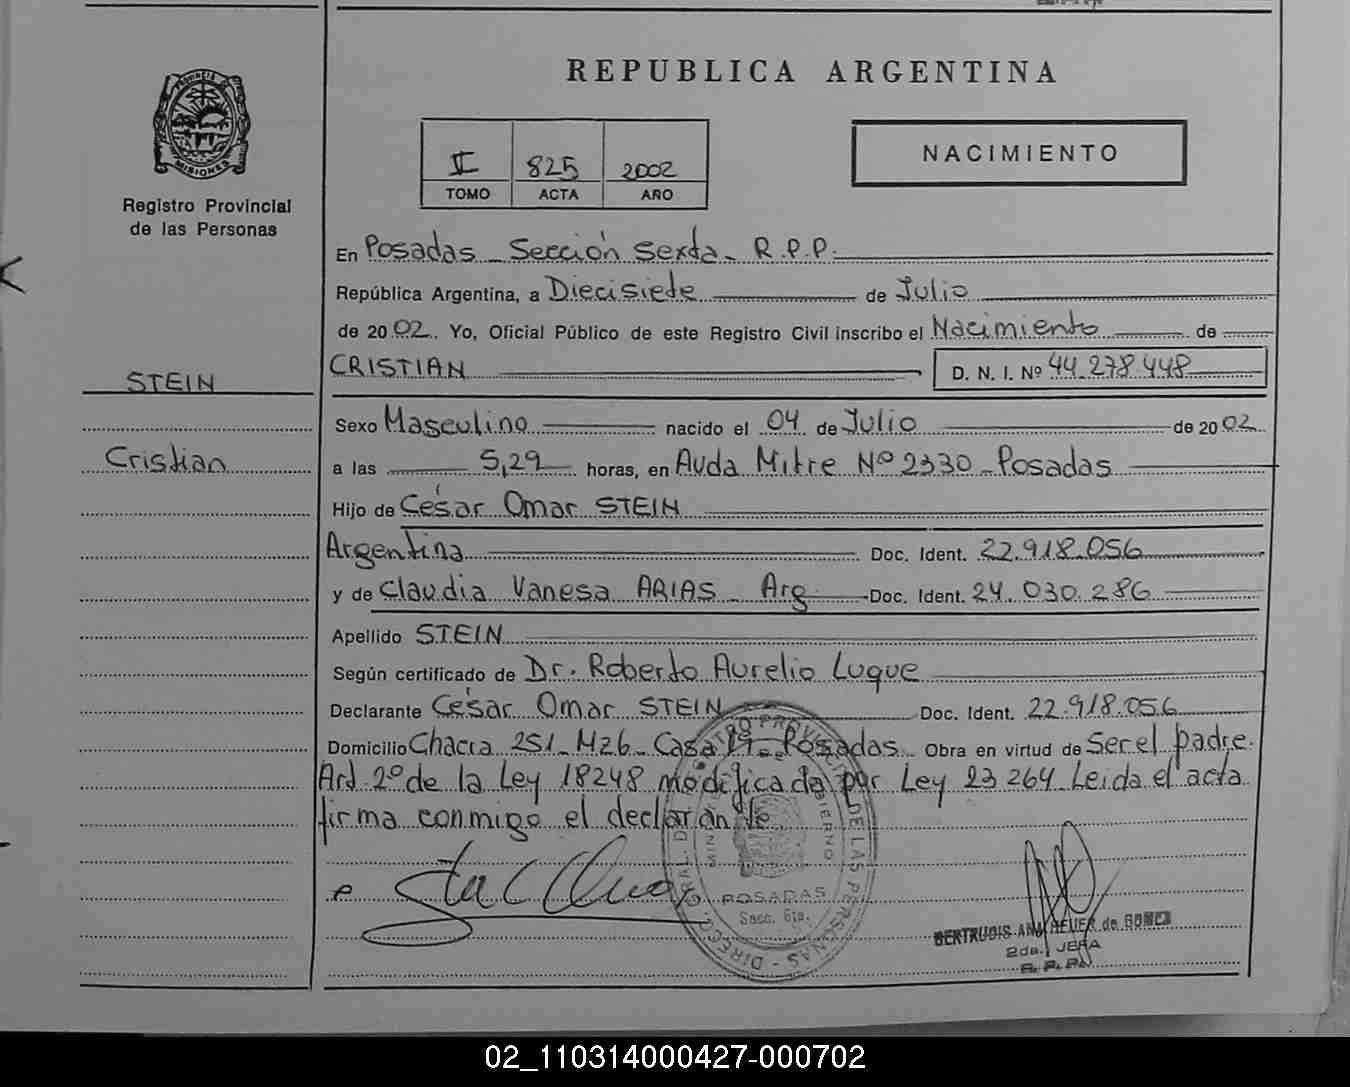 PROVINCIA DE
MISIONES
Registro Provincial
de las Personas
STEIN
Cristian
REPUBLICA ARGENTINA
II 825 2002
TOMO ACTA AÑO
NACIMIENTO
En Posadas - Sección Sexta - R.P.P.
República Argentina, a Diecisiete de Julio
de 2002. Yo, Oficial Público de este Registro Civil inscribo el Nacimiento de
CRISTIAN D. N. I. Nº 44.278.448
Sexo Masculino nacido el 04 de Julio de 2002
a las 5,29 horas, en Avda Mitre Nº 2330 - Posadas
Hijo de César Omar STEIN
Argentina Doc. Ident. 22.918.056
y de Claudia Vanesa ARIAS - Arg Doc. Ident. 24.030.286
Apellido STEIN
Según certificado de Dr. Roberto Aurelio Luque
Declarante César Omar STEIN Doc. Ident. 22.918.056
Domicilio Chacra 251 - M26 - Casa - Posadas - Obra en virtud de Ser el padre.
Art 2º de la Ley 18248 modificada por Ley 23264 Leida el acta
firma conmigo el declarante
POSADAS
Secc. 6ta.
GERTRUDIS ANA de GOMEZ
2da. JEFA
R. P. P.
02_110314000427-000702